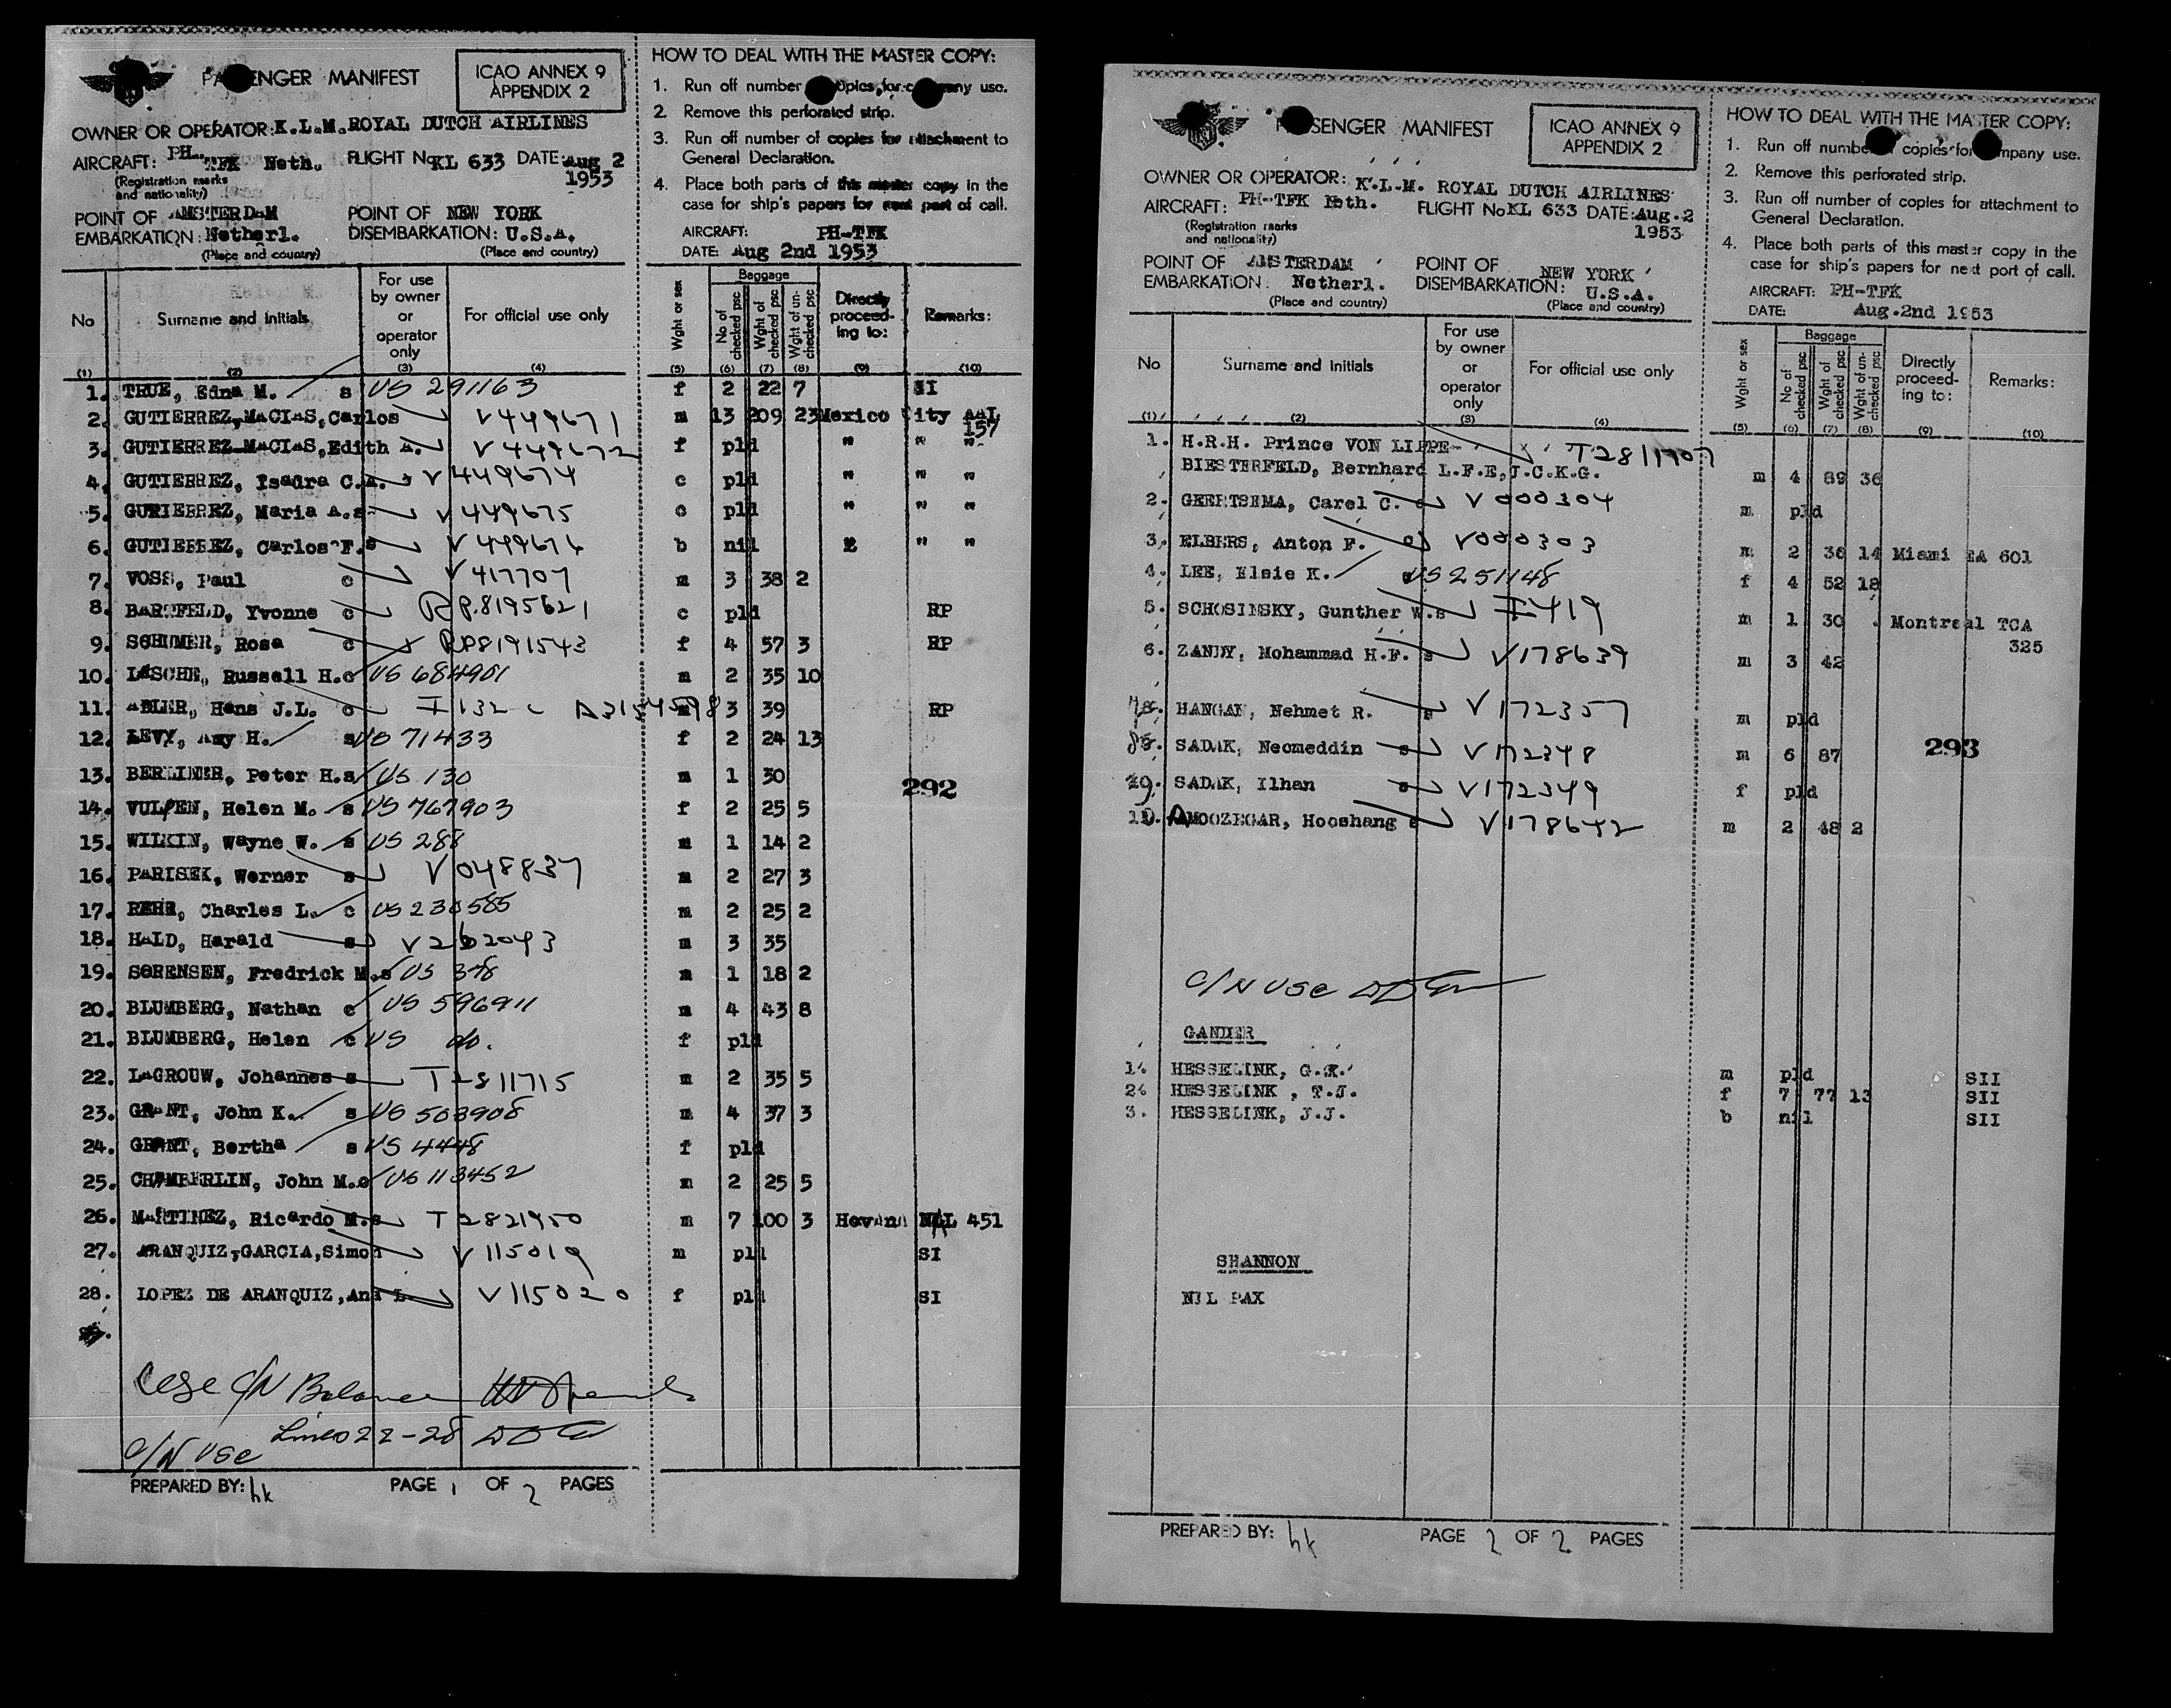 PASSENGER MANIFEST
ICAO ANNEX 9
APPENDIX 2
OWNER OR OPERATOR: K.L.M. ROYAL DUTCH AIRLINES
AIRCRAFT: PH-TFK Neth. FLIGHT No KL 633 DATE: Aug 2
1953
(Registration marks
and nationality)
POINT OF AMSTERDAM POINT OF NEW YORK
EMBARKATION: Netherl. DISEMBARKATION: U.S.A.
(Place and country) (Place and country)
HOW TO DEAL WITH THE MASTER COPY:
1. Run off number copies for company use.
2. Remove this perforated strip.
3. Run off number of copies for attachment to
General Declaration.
4. Place both parts of this master copy in the
case for ship's papers for next port of call.
AIRCRAFT: PH-TFK
DATE: Aug 2nd 1953
No Surname and initials For use by owner or operator only For official use only Wght or sex Baggage No of checked psc Wght of checked psc Wght of un-checked psc Directly proceed-ing to: Remarks:
(1) (2) (3) (4) (5) (6) (7) (8) (9) (10)
1. TRUE, Edna M. s US 291163 f 2 22 7 SI
2. GUTIERREZ-MACIAS, Carlos V449671 m 13 209 23 Mexico City AAL
157
3. GUTIERREZ-MACIAS, Edith A. V449672 f pld " " "
4. GUTIERREZ, Isaura C.A. V449674 c pld " " "
5. GUTIERREZ, Maria A. s V449675 c pld " " "
6. GUTIERREZ, Carlos F. s V449676 b nil " " "
7. VOSS, Paul c V417707 m 3 38 2
8. BARTFELD, Yvonne c RP.8195621 c pld RP
9. SCHUMER, Rosa c RP8191543 f 4 57 3 RP
10. LASCHE, Russell H. c US 684901 m 2 35 10
11. ADLER, Hans J.L. c I 132 m 3 39 RP
12. LEVY, Amy H. s US 71433 f 2 24 13
13. BERLINER, Peter H. s US 130 m 1 30
292
14. VULPEN, Helen M. s US 767903 f 2 25 5
15. WILKIN, Wayne W. s US 288 m 1 14 2
16. PARISEK, Werner s V048837 m 2 27 3
17. REHR, Charles L. c US 230585 m 2 25 2
18. HALD, Harald s V262043 m 3 35
19. SØRENSEN, Fredrick M. s US 348 m 1 18 2
20. BLUMBERG, Nathan c US 596911 m 4 43 8
21. BLUMBERG, Helen c US do. f pld
22. LAGROUW, Johannes s T2811715 m 2 35 5
23. GRANT, John K. s US 503908 m 4 37 3
24. GRANT, Bertha s US 4448 f pld
25. CHAMBERLIN, John M. c US 113452 m 2 25 5
26. MARTINEZ, Ricardo M. s T2821950 m 7 100 3 Havana NAL 451
27. ARANQUIZ-GARCIA, Simon V115019 m pld SI
28. LOPEZ DE ARANQUIZ, Ana L V115020 f pld SI
C/N Balance
Lines 22-28
C/N USC
PREPARED BY: hk PAGE 1 OF 2 PAGES
PASSENGER MANIFEST
ICAO ANNEX 9
APPENDIX 2
OWNER OR OPERATOR: K.L.M. ROYAL DUTCH AIRLINES
AIRCRAFT: PH-TFK Neth. FLIGHT No KL 633 DATE: Aug.2
1953
(Registration marks
and nationality)
POINT OF AMSTERDAM POINT OF NEW YORK
EMBARKATION: Netherl. DISEMBARKATION: U.S.A.
(Place and country) (Place and country)
HOW TO DEAL WITH THE MASTER COPY:
1. Run off number of copies for company use.
2. Remove this perforated strip.
3. Run off number of copies for attachment to
General Declaration.
4. Place both parts of this master copy in the
case for ship's papers for next port of call.
AIRCRAFT: PH-TFK
DATE: Aug.2nd 1953
No Surname and initials For use by owner or operator only For official use only Wght or sex Baggage No of checked psc Wght of checked psc Wght of un-checked psc Directly proceed-ing to: Remarks:
(1) (2) (3) (4) (5) (6) (7) (8) (9) (10)
1. H.R.H. Prince VON LIPPE- T2811707
BIESTERFELD, Bernhard L.F.E.J.C.K.G. m 4 89 36
2. GEERTSEMA, Carel C. V000304 m pld
3. ELBERS, Anton F. V000303 m 2 36 14 Miami EA 601
4. LEE, Elsie K. US 251148 f 4 52 18
5. SCHOSINSKY, Gunther W. s I419 m 1 30 Montreal TCA
325
6. ZANDY, Mohammad H.F. s V178639 m 3 42
7. HANGAN, Nehmet R. s V172357 m pld
8. SADAK, Necmeddin s V172348 m 6 87
293
9. SADAK, Ilhan s V172349 f pld
10. AMOOZEGAR, Hooshang s V178642 m 2 48 2
C/N USC
GANDER
1. HESSELINK, G.K. m pld SII
2. HESSELINK, T.J. f 7 77 13 SII
3. HESSELINK, J.J. b nil SII
SHANNON
NIL PAX
PREPARED BY: hk PAGE 2 OF 2 PAGES